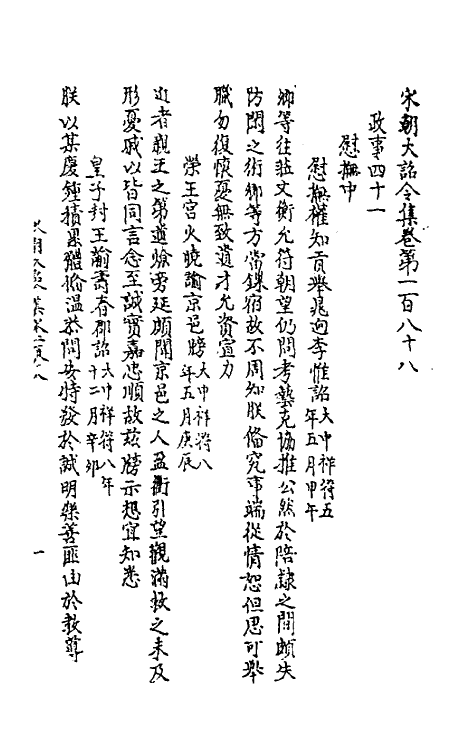 宋朝大詔令集卷第一百八十八
政事四十一
慰撫中
慰撫權知貢舉晁迥李惟詔大中祥符五年五月甲午
卿等往蒞文衡允符朝望仍問考藝克協推公然於陪隸之間頗失
防閑之術卿等方當鏁宿故不周知朕俻究事端從情恕但思可舉
職勿復懷憂無致遺才允資宣力
榮王宮火曉諭京邑牓大中祥符八年五月庚辰
近者親王之第遺燎旁延頗聞京邑之人盈衢引望觀滿救之未及
形憂戚以皆同言念至誠實嘉忠順故茲牓示想宜知悉
皇子封王諭壽春郡詔大中祥符八年十二月辛卯
朕以某慶鍾積累體脩溫恭問安特發於誠明樂善匪由於教䔿
一